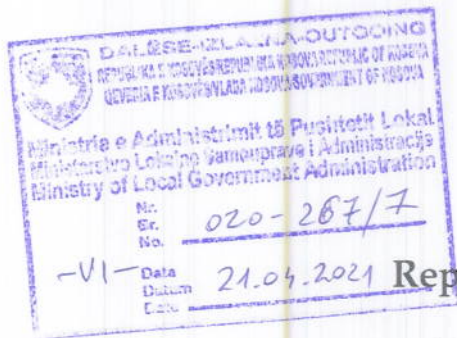 DALËSE-IZLAZNA-OUTGOING
REPUBLIKA E KOSOVËS/REPUBLIKA KOSOVA/REPUBLIC OF KOSOVA
QEVERIA E KOSOVËS/VLADA KOSOVA/GOVERNMENT OF KOSOVA
Ministria e Administrimit të Pushtetit Lokal
Ministarstvo Lokalne Samouprave i Administracije
Ministry of Local Government Administration
Nr.
Br.
No. 020-267/7
-VI- Data
Datum 21.04.2021 Rep
Date